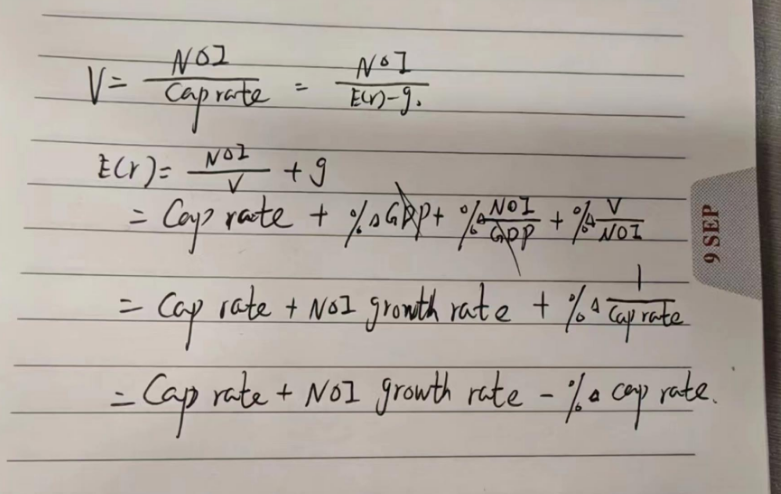 V = NOI / Cap rate = NOI / E(r)-g.
E(r) = NOI / V + g
= Cap rate + %ΔGDP + %Δ NOI / GDP + %Δ V / NOI
= Cap rate + NOI growth rate + %Δ 1 / Cap rate
= Cap rate + NOI growth rate - %Δ cap rate.
9 SEP